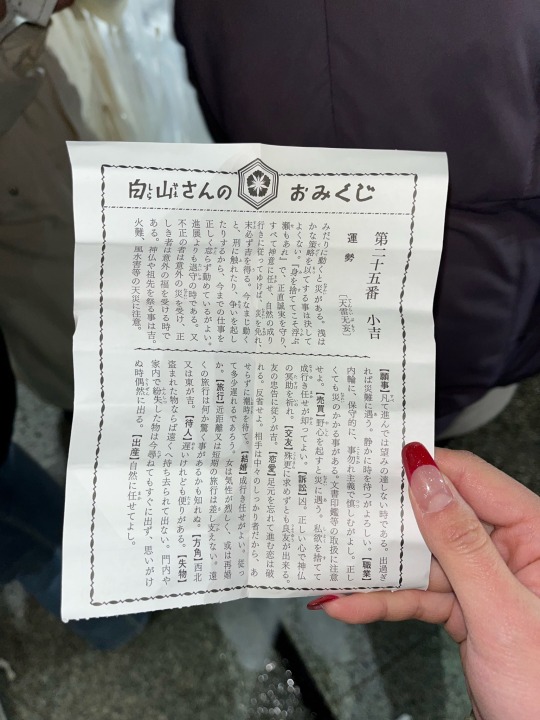 白山さんの おみくじ
第二十五番 小吉
〔天雷无妄〕
運勢
みだりに動くと災がある。浅は
かな策略を以てする事は決して
よくない。「身を捨ててこそ浮ぶ
瀬もあれ」で、正直誠実を守り、
すべて神意に任せ、自然の成り
行きに従ってゆけば、災を免れ、
末必ず吉を得る。今なまじ動く
と、刑に触れたり、争いを起し
たりするから、今までの仕事を
正しく怠らず勤めているがよい。
進展よりも退守の時である。又
不正の者は意外の災を受け、正
しき者は意外の福を受ける時で
ある。神仏や祖先を祭る事は吉。
火難、風水害等の天災に注意。
【願事】凡て進んでは望みの達しない時である。出過ぎ
れば災難に遇う。静かに時を待つがよろしい。【職業】
内輪に、保守的に、事勿れ主義で慎しむがよし。正し
くても災のかかる事がある。文書印鑑等の取扱に注意
せよ。【売買】野心を起すと災に遇う。私欲を捨てて
成行き任せが却ってよい。【訴訟】凶。正しい心で神仏
の冥助を祈れ。【交友】殊更に求めずとも良友が出来る。
友の忠告に従うが吉。【恋愛】足元を忘れて進む恋は破
れる。反省せよ。相手は中々のしっかり者だから、あ
せらずに潮時を待て。【結婚】成行き任せがよい。従っ
て多少遅れるであろう。女は気性が烈しく、或は再婚
か。【旅行】近距離又は短期の旅行は差し支えない。遠
くの旅行は何か驚く事があるかも知れぬ。【方角】西北
又は東が吉。【待人】遅いけれども便りがある。【失物】
盗まれた物ならば遠くへ持ち去られて出ない。門内や
家内で紛失した物は今尋ねてもすぐに出ず、思いがけ
ぬ時偶然に出る。【出産】自然に任せてよし。